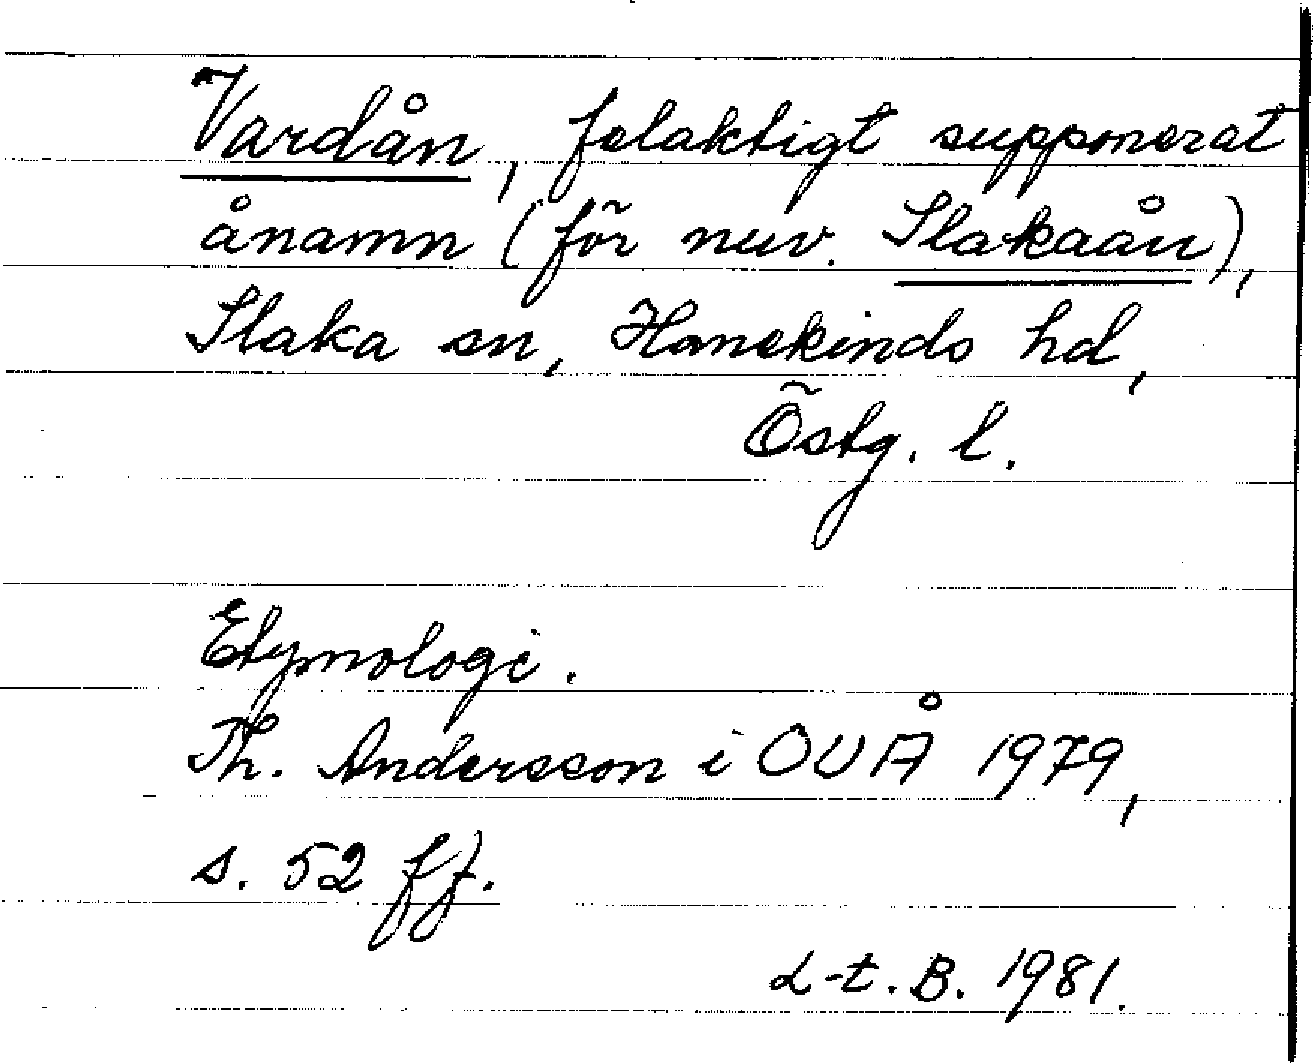 Vardån, felaktigt supponerat
ånamn (för nuv. Slakaån),
Slaka sn, Hanekinds hd,
Östg. l.
Etymologi.
Th. Andersson i OUÅ 1979,
s. 52 ff.
L-t. B. 1981.